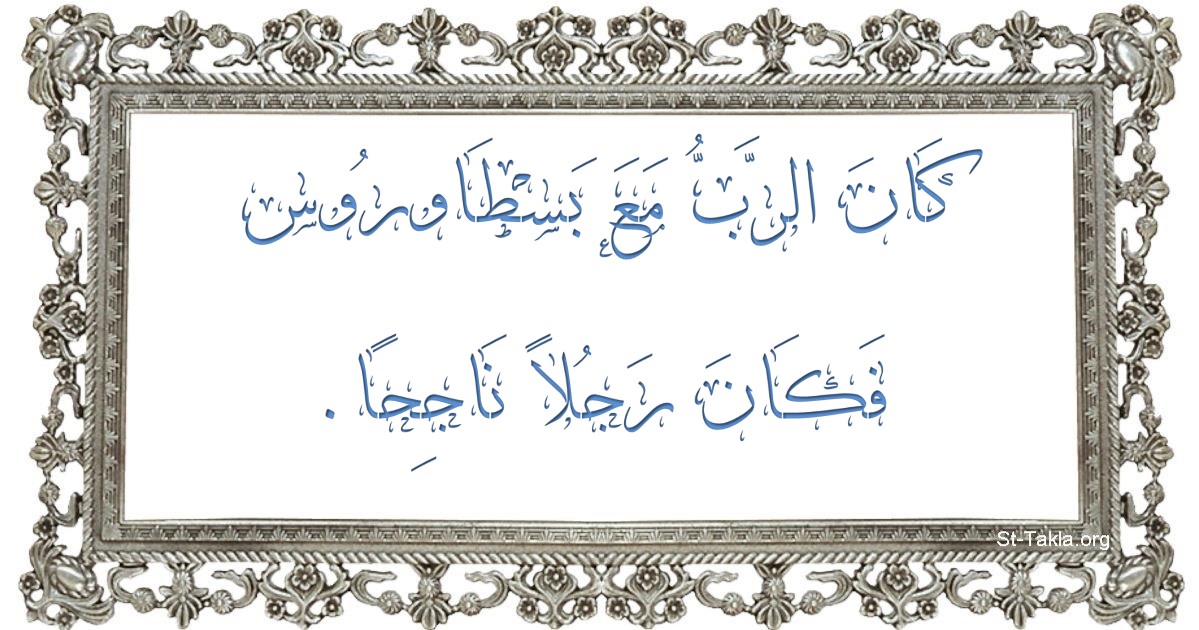 كَانَ الرَّبُّ مَعَ بَسْطَاورُوس
فَكَانَ رَجُلاً نَاجِحًا .
St-Takla.org